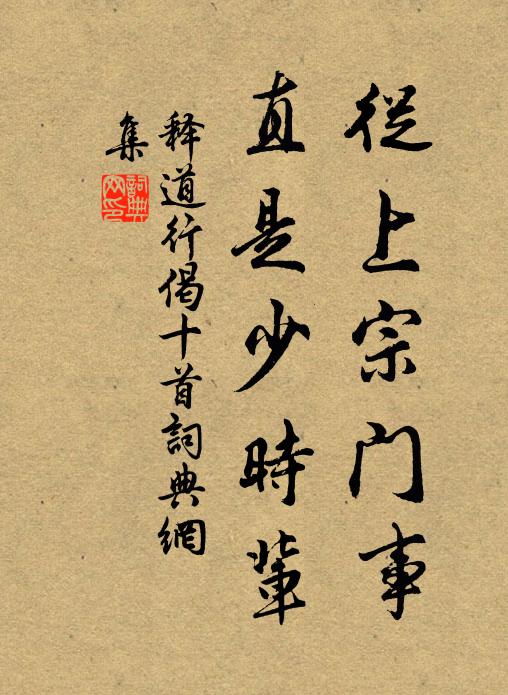 從上宗門事
直是少時輩
释道行偈十首詞典網
集
詞典
网印